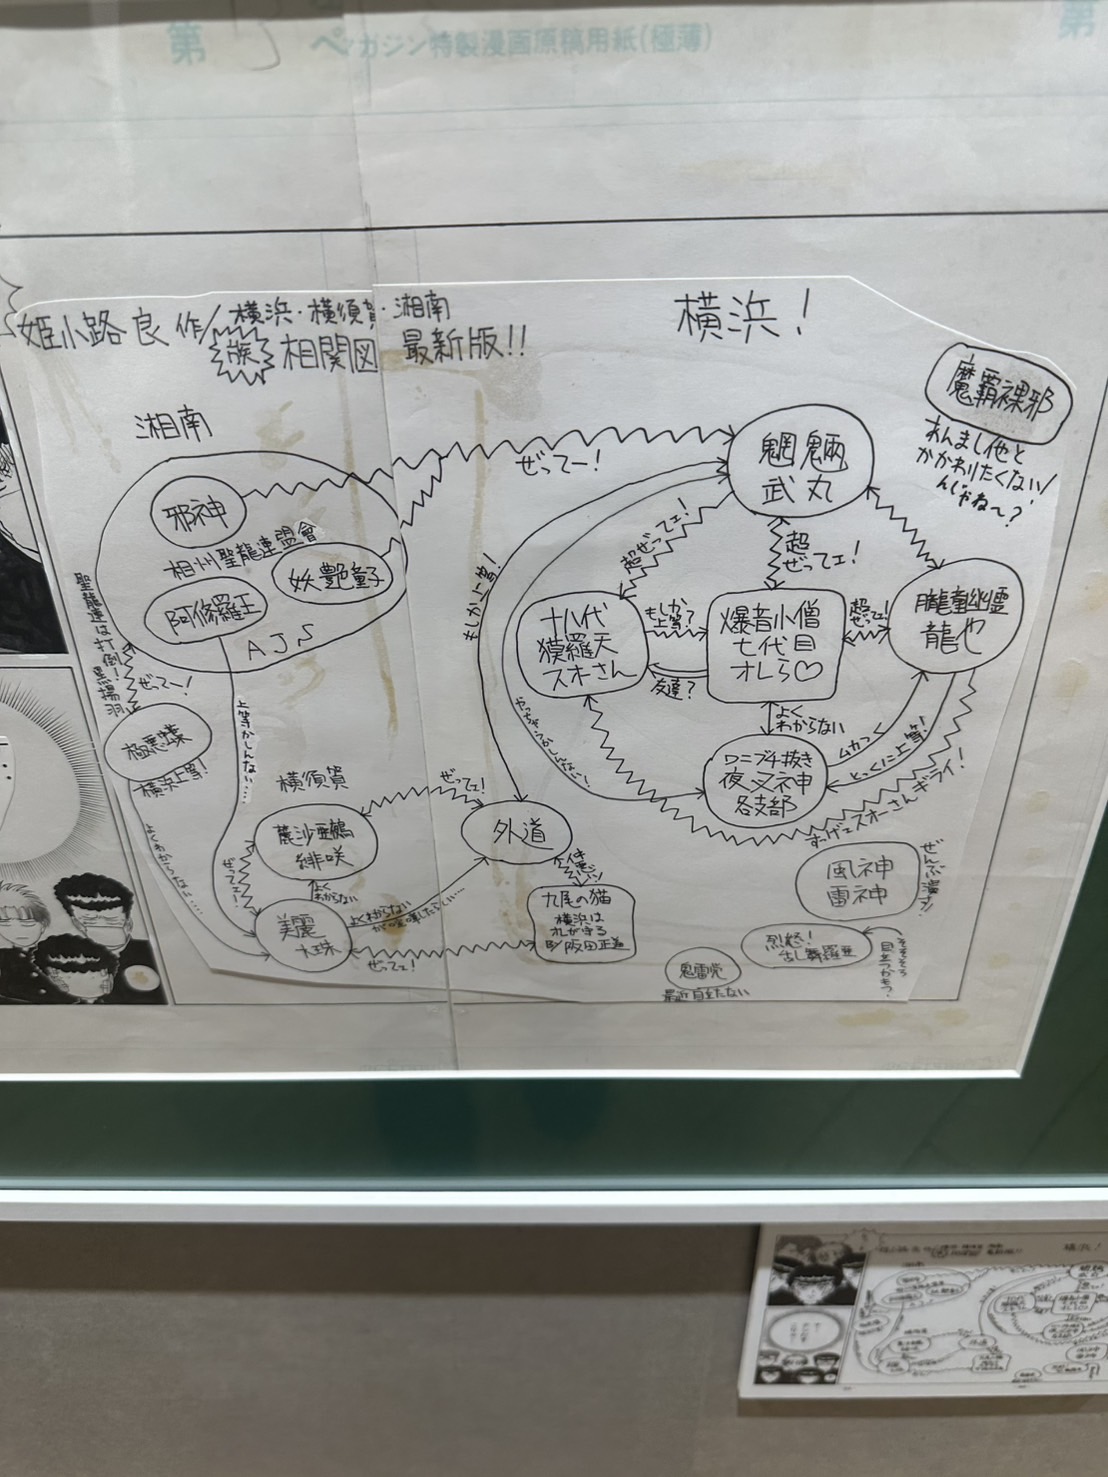 第
マガジン特製漫画原稿用紙(極薄)
第
姫小路良 作/横浜・横須賀・湘南
族 相関図 最新版!!
横浜!
湘南
邪神
相州聖龍連盟會
妖艶童子
阿修羅王
A.J.S
ぜってー!
魍魎
武丸
魔覇裸邪
あんまし他と
かかわりたくない
んじゃね〜?
もしか上等!
超ぜってェ!
超
ぜってェ!
十八代
獏羅天
スオーさん
もしか
上等?
友達?
爆音小僧
七代目
オレら♡
超
ぜってェ!
朧童幽霊
龍也
よく
わからない
ワニブチ抜き
夜叉神
各支部
ムカつく
とっくに上等!
すっげェスオーさんギライ!
聖龍連は打倒!黒揚羽
ぜってー!
極悪蝶
横浜上等!
上等かしんない…
よくわからない……
横須賀
麓沙亜鵺
緋咲
ぜってェ!
よく
わからない
美麗
ぜってェ!
外道
よくわからない
が喧嘩したらしい……
仲悪い
九尾の猫
横浜は
オレが守る
BY 阪田正道
ぜってェ!
風神
雷神
ぜんぶ潰す!
鬼雷党
最近目立たない
そろそろ
目立つかも?